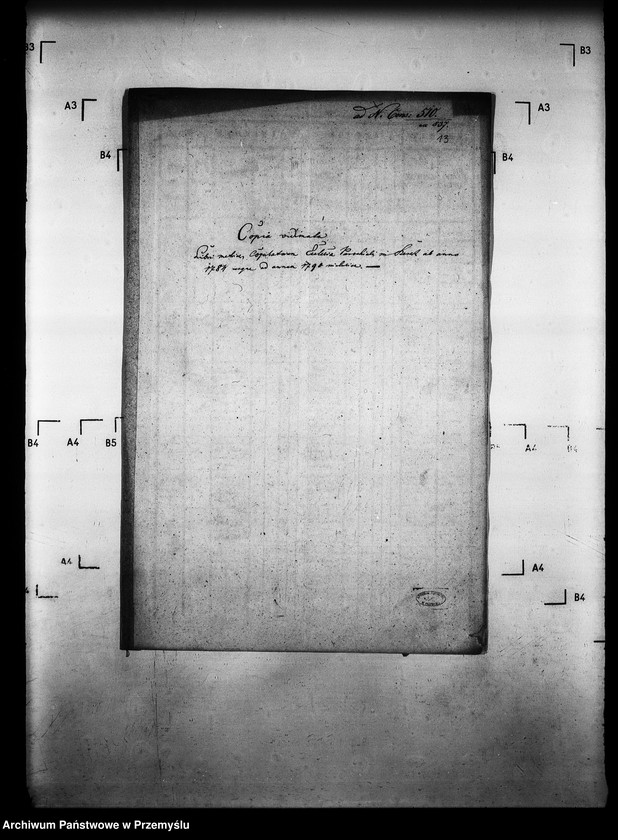 B3 B3
A3 A3
ad N. Cons: 510.
ex 837.
13
B4 B4
Copia vidimata
Libri metrices Copulatorum Ecclesiae Parochialis in ab anno
1784 usque ad annum 1790 inclusive. —
B4 A4 B5 A4 B4
A4 A4
B4
Archiwum Państwowe w Przemyślu